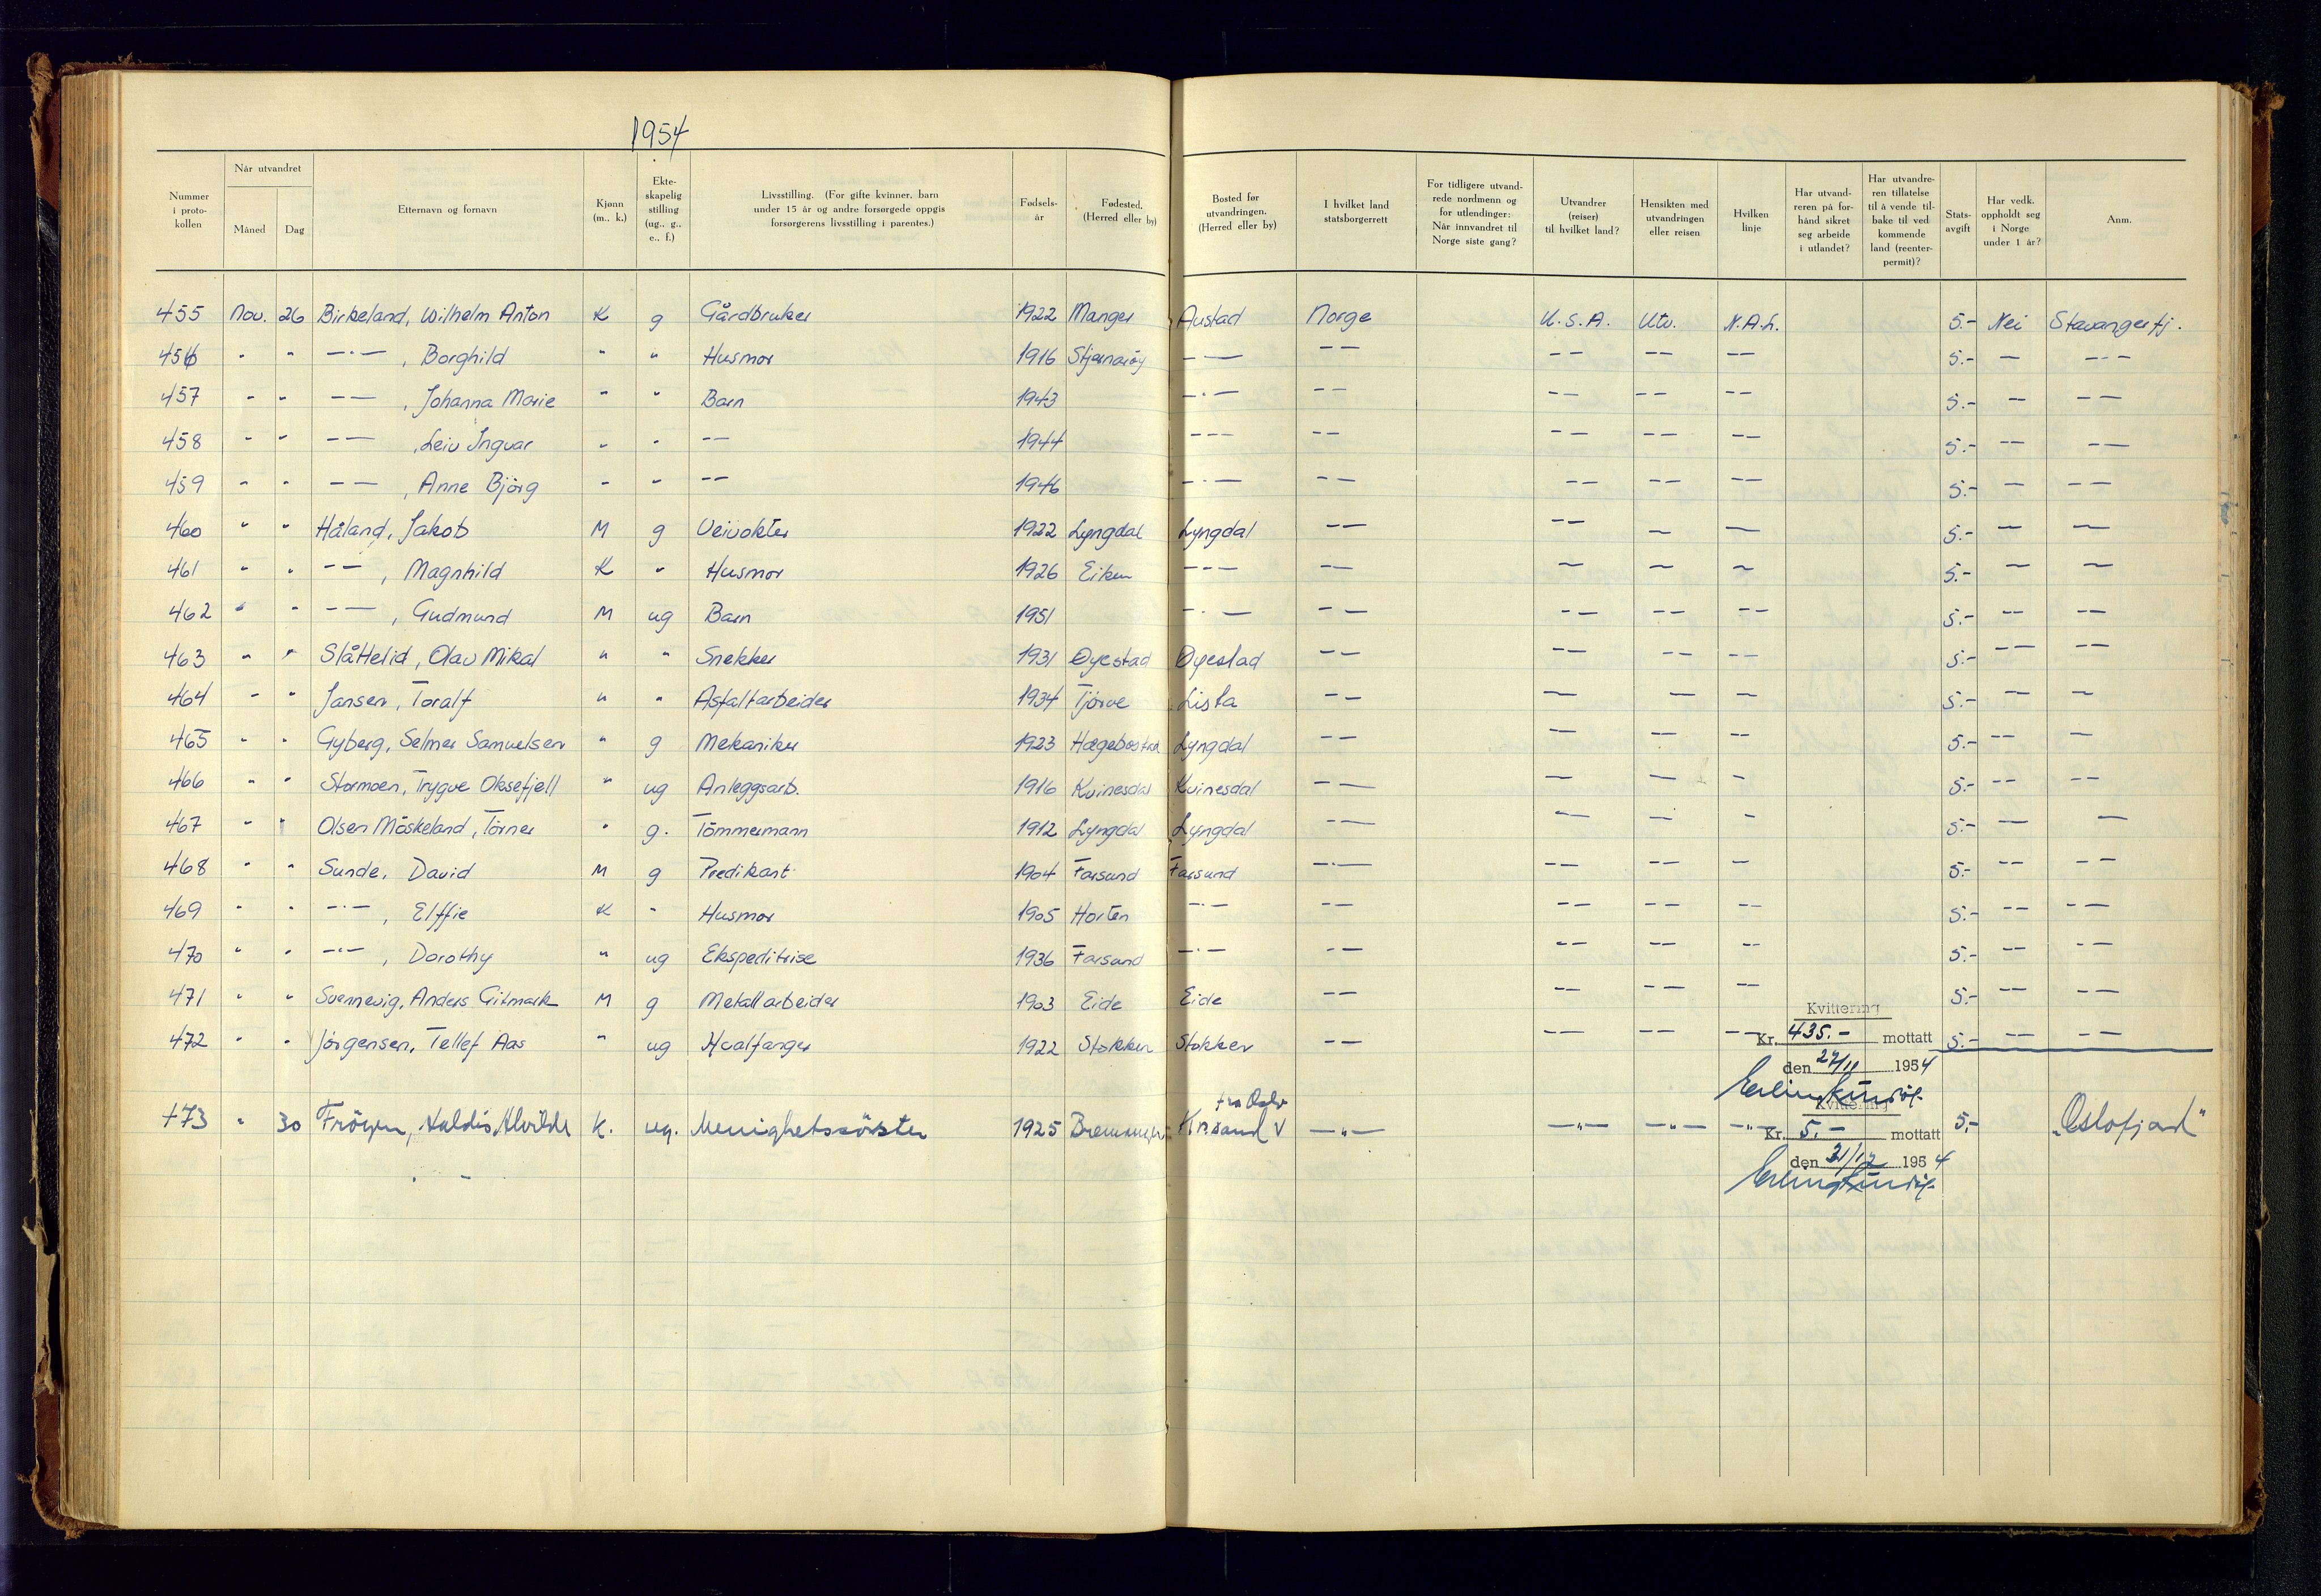 1954
Nummer i protokollen | Når utvandret Måned Dag | Etternavn og fornavn | Kjønn (m., k.) | Ekteskapelig stilling (ug., g., e., f.) | Livsstilling. (For gifte kvinner, barn under 15 år og andre forsørgede oppgis forsørgerens livsstilling i parentes.) | Fødselsår | Fødested. (Herred eller by) | Bosted før utvandringen. (Herred eller by) | I hvilket land statsborgerrett | For tidligere utvandrede nordmenn og for utlendinger: Når innvandret til Norge siste gang? | Utvandrer (reiser) til hvilket land? | Hensikten med utvandringen eller reisen | Hvilken linje | Har utvandreren på forhånd sikret seg arbeide i utlandet? | Har utvandreren tillatelse til å vende tilbake til vedkommende land (reenterpermit)? | Statsavgift | Har vedk. oppholdt seg i Norge under 1 år? | Anm.
455 Nov. 26 Birkeland, Wilhelm Anton K g Gårdbruker 1922 Manger Austad Norge U.S.A. Utv. N.A.L. 5.- Nei Stavangerfj.
456 " " —·— , Borghild " " Husmor 1916 Stjernarøy —— —— —— —— —— 5.- — —·—
457 " " —— , Johanna Marie " " Barn 1943 —·— —— —— —— —— 5.- — ——
458 " " —— , Leiv Ingvar " " —— 1944 —·— —— —— —— —— 5.- —— ——
459 " " —— , Anne Bjørg " " —— 1946 —·— —— —— —— —— 5.- — ——
460 " " Håland, Jakob M g Veivokter 1922 Lyngdal Lyngdal —— —— — — 5.- — —
461 " " —— , Magnhild K " Husmor 1926 Eiken —·— —— — — — 5.- — —
462 " " —— , Gudmund M ug Barn 1951 —·— —— —— —— —— 5.- —— ——
463 " " Slåttelid, Olav Mikal " " Snekker 1931 Øyestad Øyestad —— —— —— —— 5.- —— ——
464 " " Jansen, Toralf " " Asfaltarbeider 1934 Tjørve Lista —— — — — 5.- — —
465 " " Gyberg, Selmer Samuelsen " g Mekaniker 1923 Hægebostad Lyngdal —— — — — 5.- —— —
466 " " Stormoen, Trygve Oksefjell " ug Anleggsarb. 1916 Kvinesdal Kvinesdal —— — — — 5.- —— ——
467 " " Olsen Møskeland, Tørner " g. Tømmermann 1912 Lyngdal Lyngdal —— — — — 5.- — —
468 " " Sunde, David M g Predikant 1904 Farsund Farsund —·— —— —— — 5.- —— ——
469 " " —·— , Elffie K " Husmor 1905 Horten —·— —— —— —— —— 5.- —— ——
470 " " —·— , Dorothy " ug Ekspeditrise 1936 Farsund —·— —— —— —— —— 5.- —— ——
471 " " Svennevig, Anders Gitmark M g Metallarbeider 1903 Eide Eide —— —— —— —— 5.- —— ——
Kvittering
472 " " Jørgensen, Tellef Aas " ug Hvalfanger 1922 Stokken Stokken —— —— —— —— Kr. 435.- mottatt 5.- —— ——
den 27/11 1954
fra Oslo
Kvittering
473 " 30 Frøyen, Haldis Alvilde K. ug. Menighetssøster 1925 Bremanger Kr.sand V —"— —"— —"— —"— Kr. 5.- mottatt 5,- "Oslofjord"
den 31/12 1954